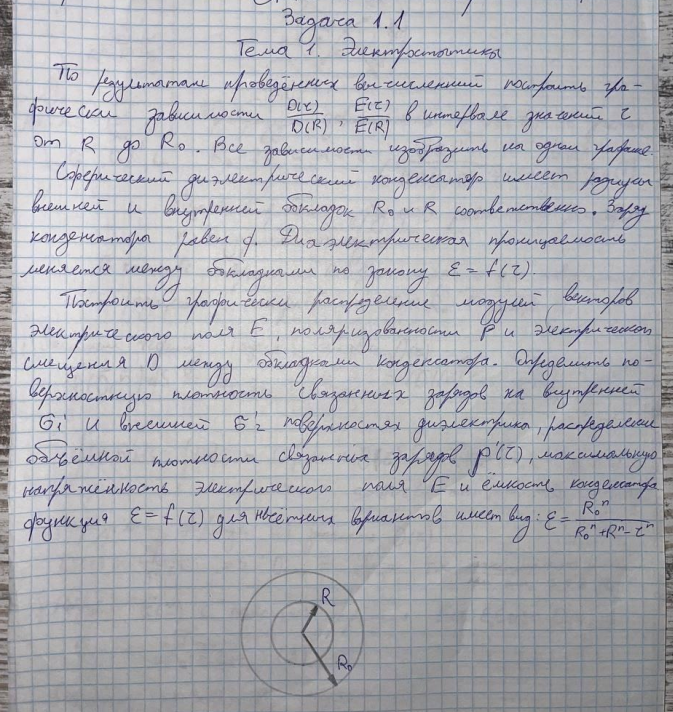 Задача 1.1
Тема 1. Электростатики
По результатам проведённых вычислений построить гра-
фически зависимости D(τ)/D(R), E(τ)/E(R) в интервале значений τ
от R до R₀. Все зависимости изобразить на одном графике.
Сферический диэлектрический конденсатор имеет радиусы
внешней и внутренней обкладок R₀ и R соответственно. Заряд
конденсаторы равен q. Диаэлектрическая проницаемость
меняется между обкладками по закону ε = f(τ).
Построить графически распределение модулей векторов
электрического поля E, поляризованности P и электрического
смещения D между обкладками конденсатора. Определить по-
верхностную плотность связанных зарядов на внутренней
σ'₁ и внешней σ'₂ поверхностях диэлектрика, распределение
объёмной плотности связанных зарядов ρ'(τ), максимальную
напряжённость электрического поля E и ёмкость конденсатора
функция ε = f(τ) для нечётных вариантов имеет вид: ε = R₀ⁿ/(R₀ⁿ+Rⁿ-τⁿ)
R
R₀